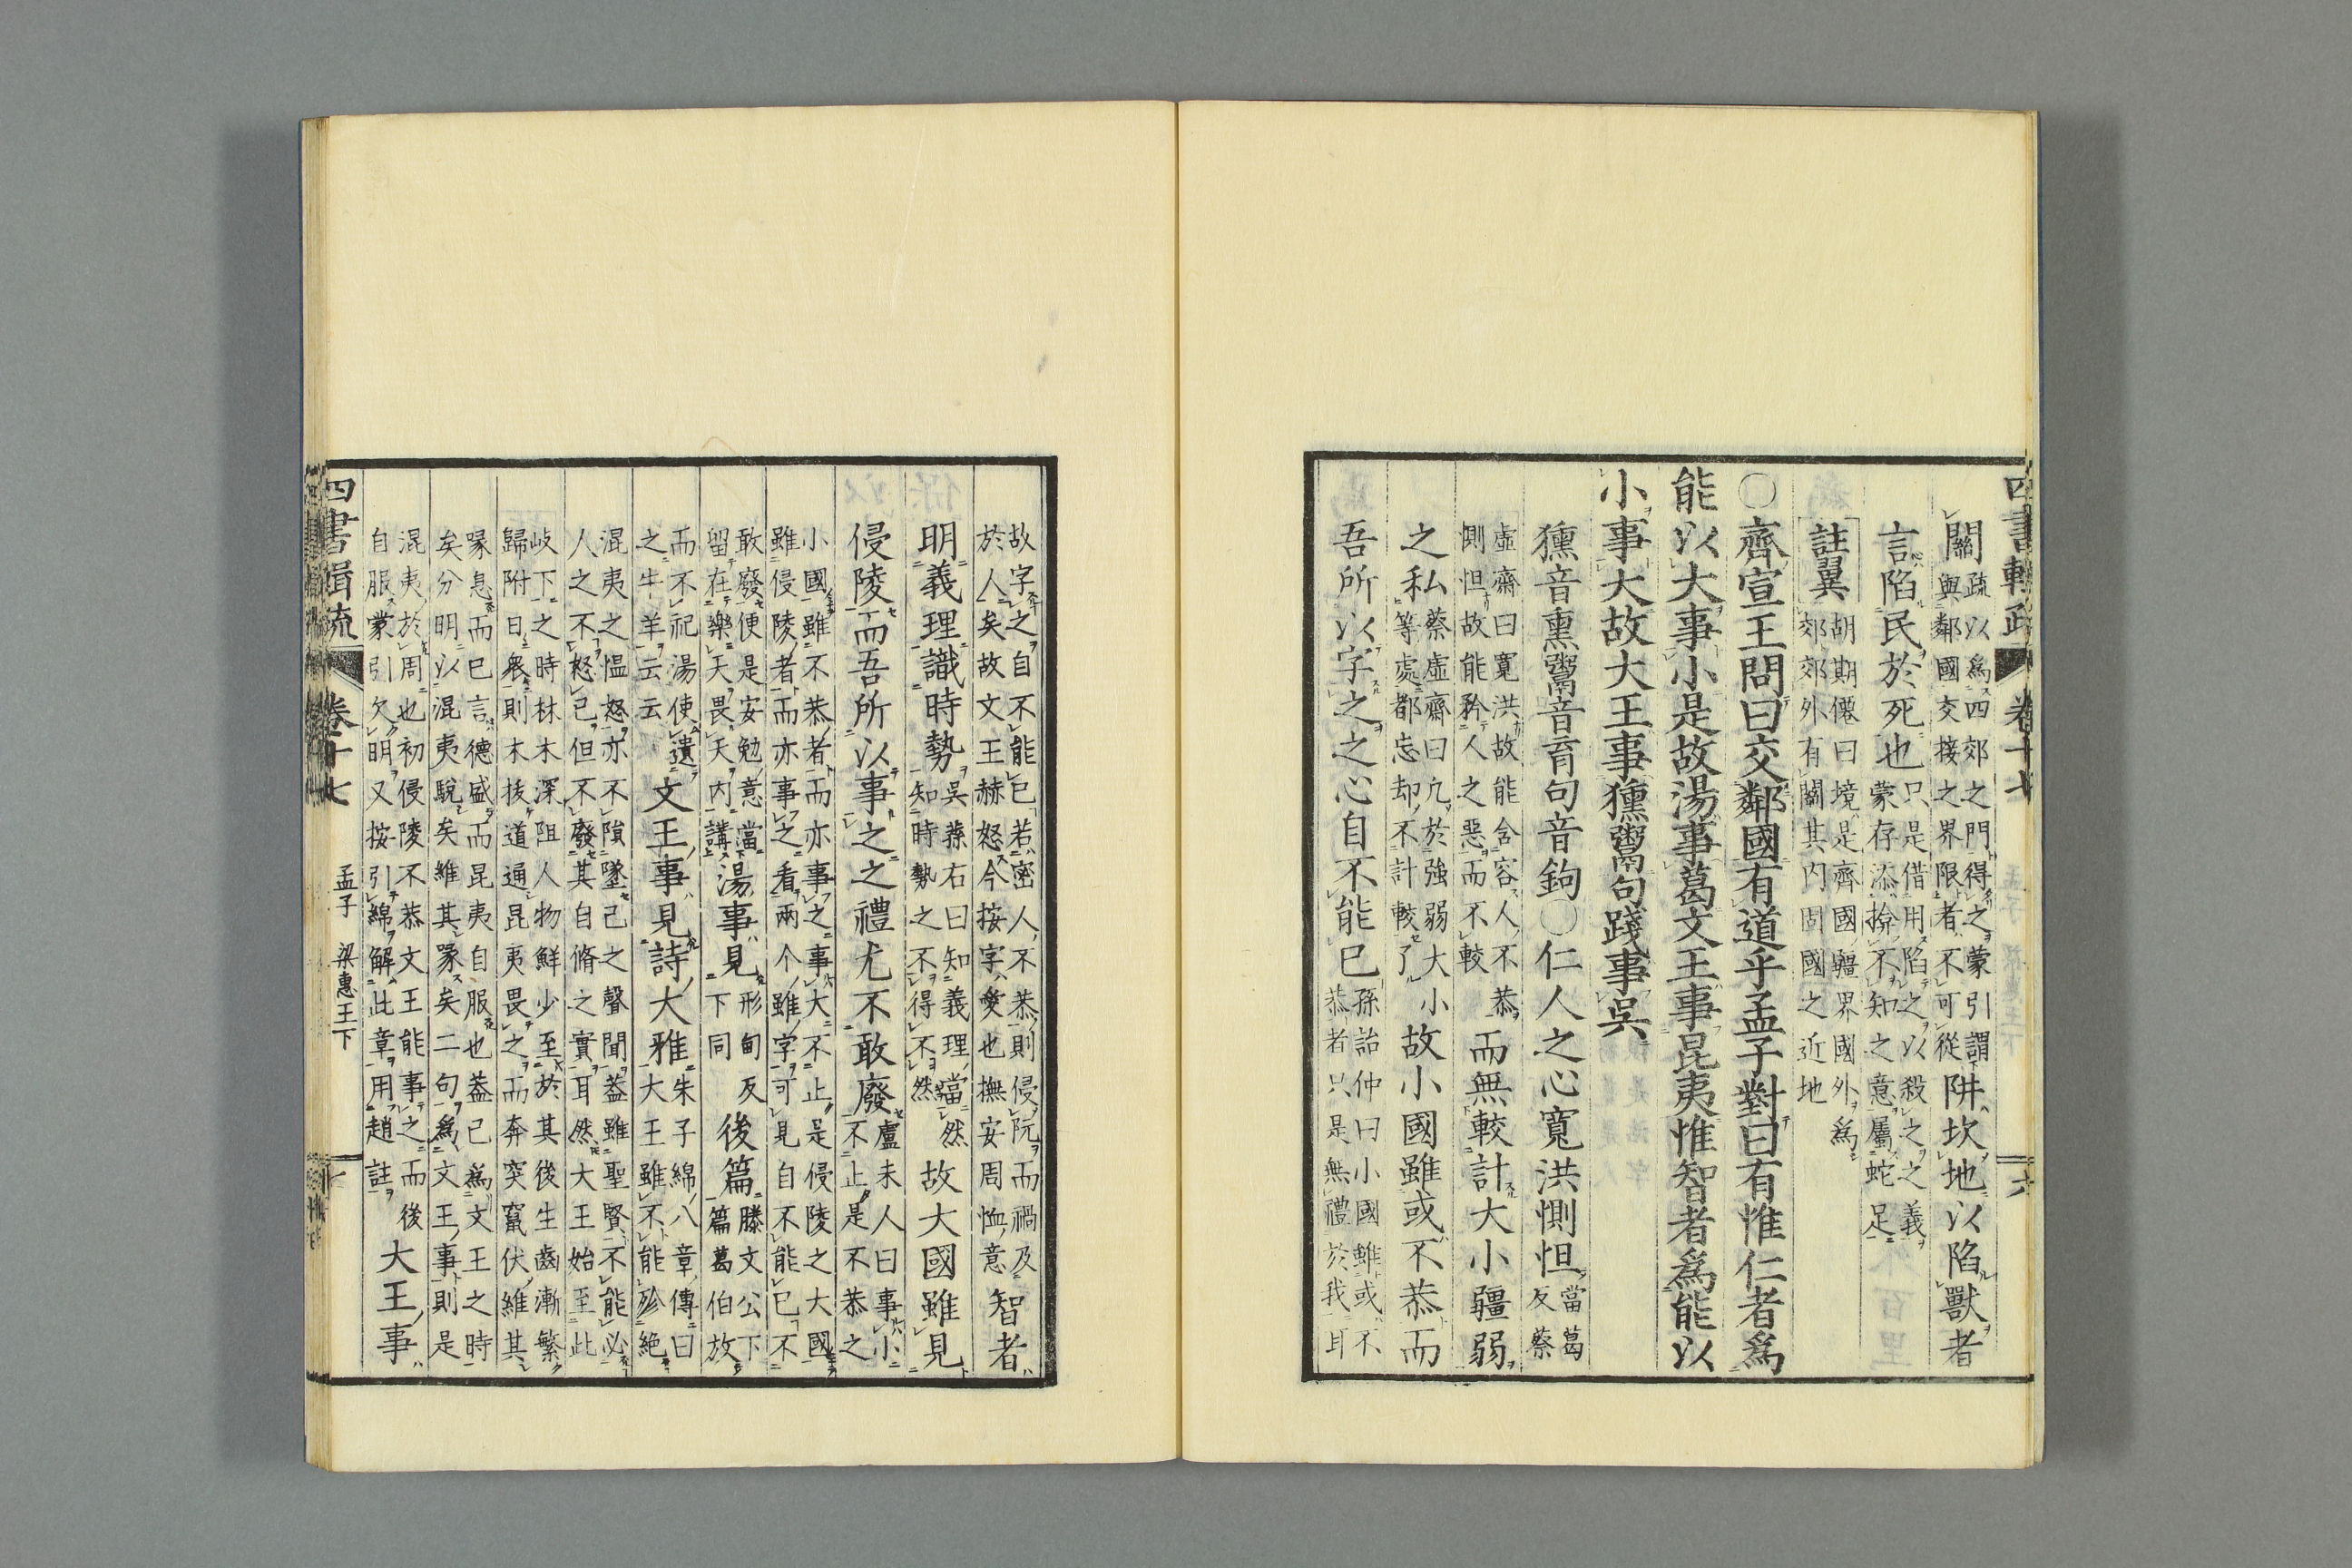 四書輯疏 卷十七 六
關疏以爲四郊之門得之蒙引謂
與鄰國交接之界限者不可從
阱坎地以陷獸者
言陷民於死也
只是借用陷之以殺之之義
蒙存添揜不知之意屬蛇足
註翼
胡期僊曰境是齊國疆界國外爲
郊郊外有關其內固國之近地
〇齊宣王問曰交鄰國有道乎孟子對曰有惟仁者爲
能以大事小是故湯事葛文王事昆夷惟智者爲能以
小事大故大王事獯鬻句踐事吳
獯音熏鬻音育句音鉤〇仁人之心寬洪惻怛
當葛
反蔡
虛齋曰寬洪故能舍容人不恭
惻怛故能矜人之惡而不較
而無較計大小彊弱
之私
蔡虛齋曰凢於強弱大小
等處都忘却不計較了
故小國雖或不恭而
吾所以字之之心自不能已
孫詒仲曰小國雖或不
恭者只是無禮於我耳
故字之自不能已若密人不恭則侵阮而禍及
於人矣故文王赫怒今按字愛也撫安周恤意
智者
明義理識時勢
吳蓀右曰知義理當然
知時勢之不得不然
故大國雖見
侵陵而吾所以事之之禮尤不敢廢
盧未人曰事小
不止是不恭之
小國雖不恭者而亦事之事大不止是侵陵之大國
雖侵陵者而亦事之看兩个雖字可見自不能已不
敢廢便是安勉意當
留在樂天畏天內講
湯事見
形甸反
下同
後篇
滕文公下
篇葛伯放
而不祀湯使遺
之牛羊云云
文王事見詩大雅
朱子綿八章傳曰
大王雖不能殄絶
混夷之慍怒亦不隕墜己之聲聞葢雖聖賢不能必
人之不怒己但不廢其自脩之實耳然大王始至此
岐下之時林木深阻人物鮮少至於其後生齒漸繁
歸附日衆則木拔道通昆夷畏之而奔突竄伏維其
喙息而已言德盛而昆夷自服也葢已爲文王之時
矣分明以混夷駾矣維其喙矣二句爲文王事則是
混夷於周也初侵陵不恭文王能事之而後
自服蒙引欠明又按引綿解此章用趙註
大王事
四書輯疏 卷十七 孟子 梁惠王下